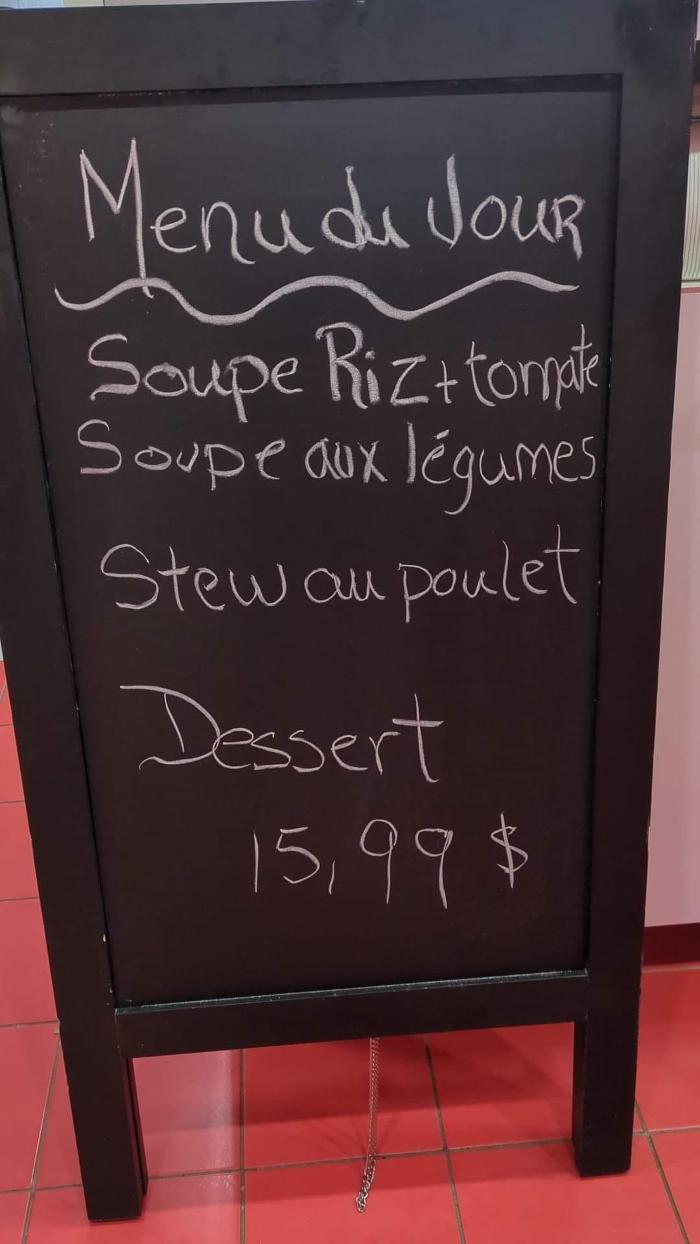 Menu du Jour
Soupe Riz + tomate
Soupe aux légumes
Stew au poulet
Dessert
15,99 $